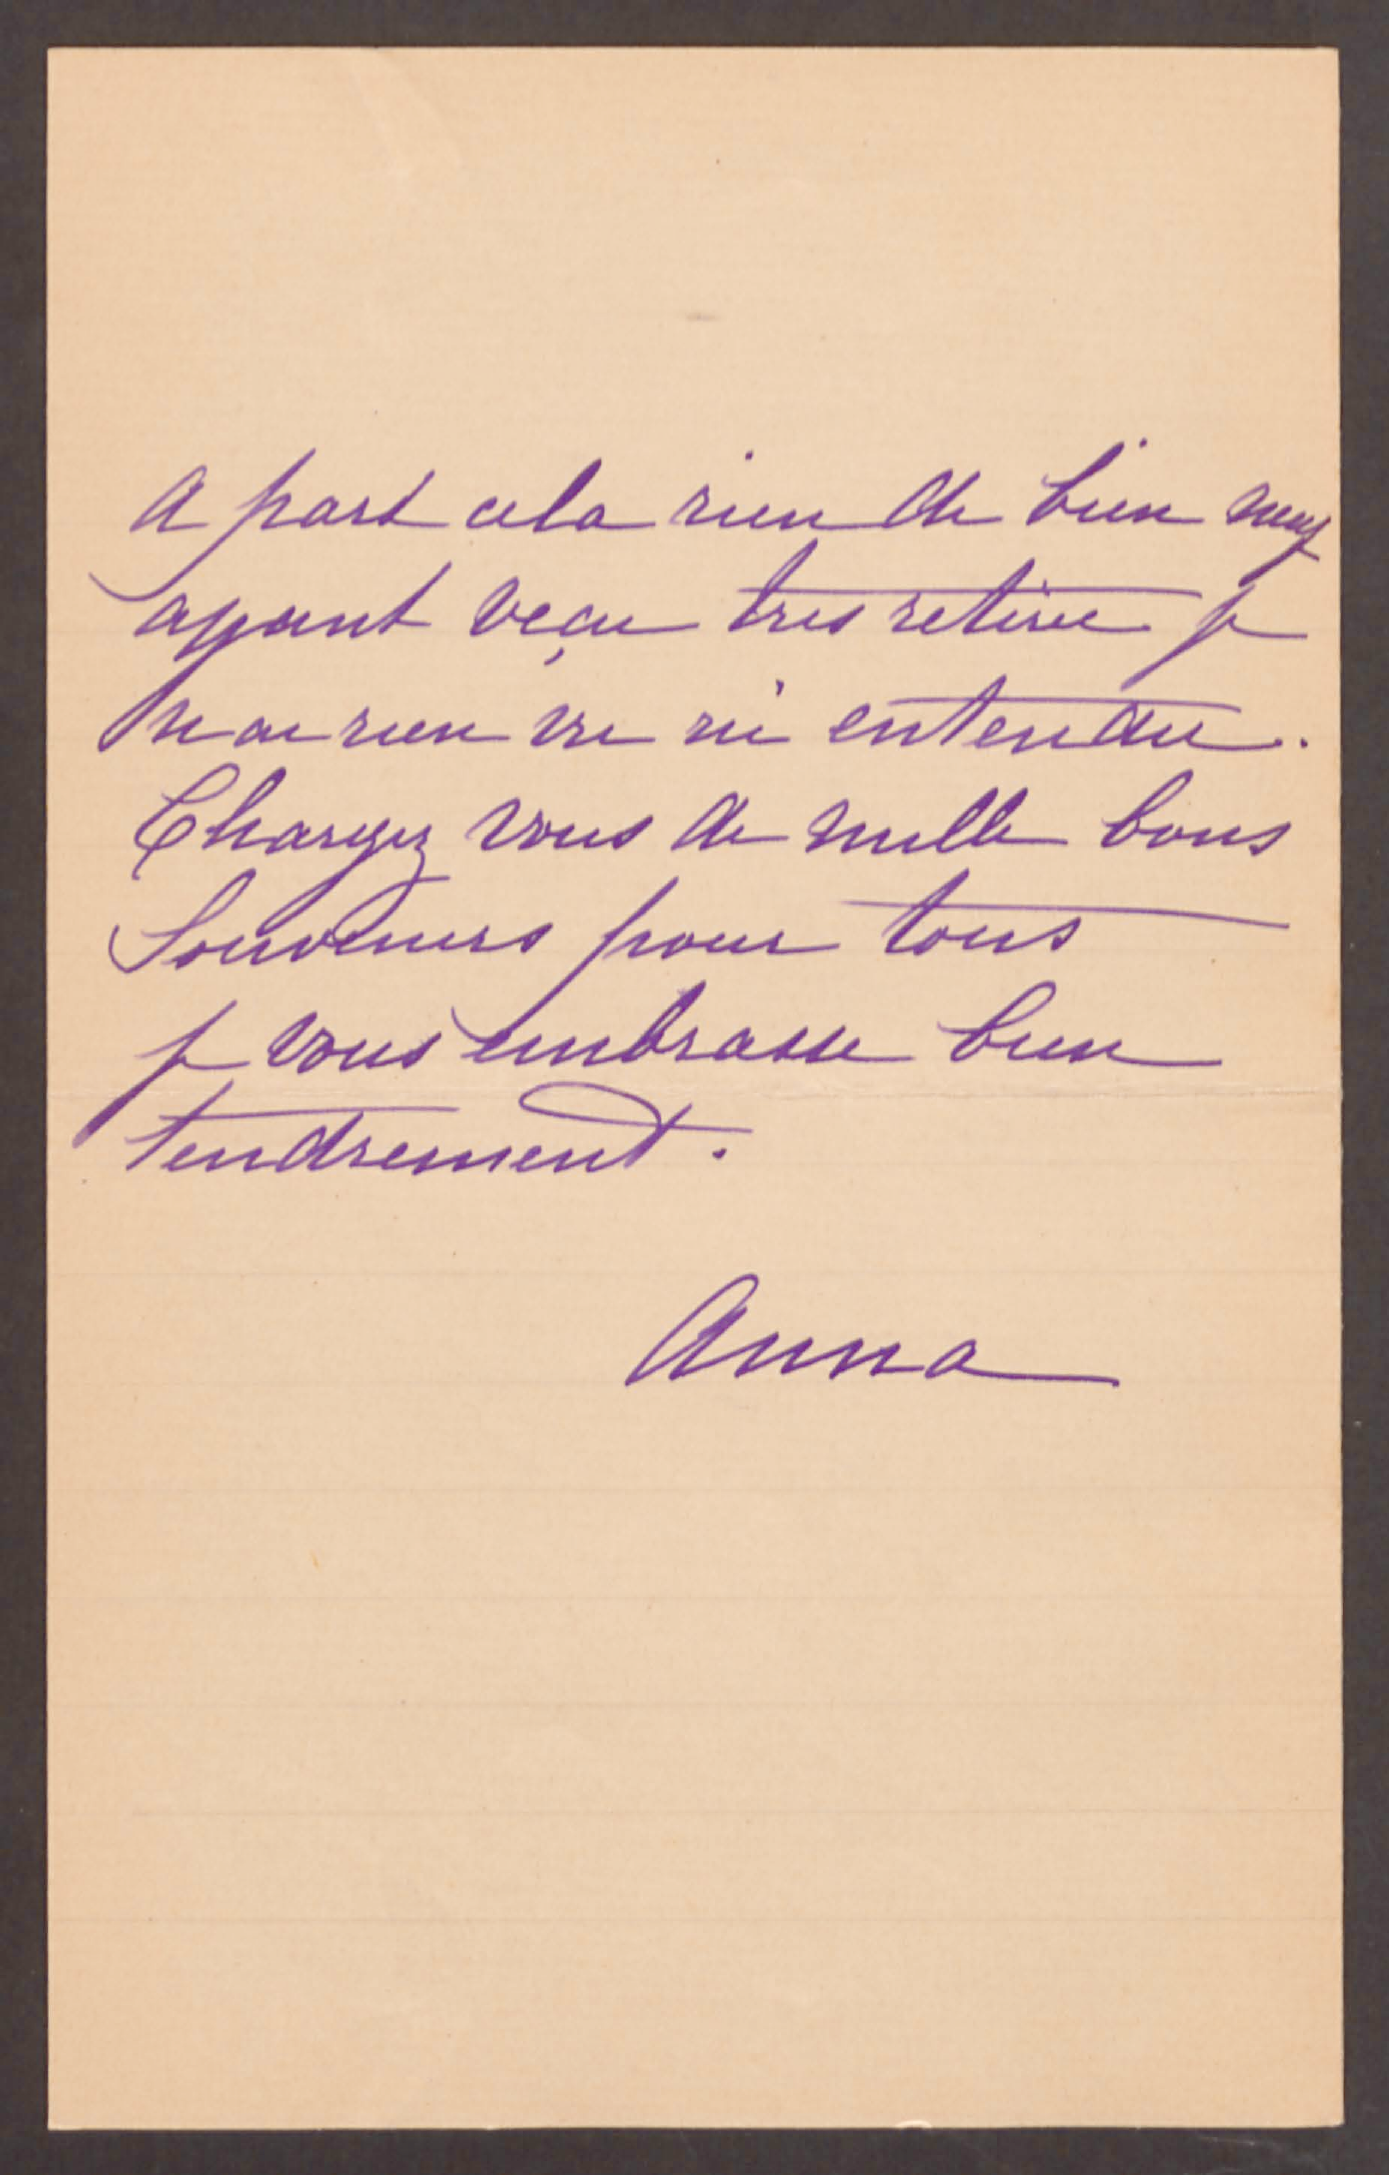 A part cela rien de bien neuf
ayant veçu tres retirée je
n'ai rien vu ni entendu.
Chargez vous de mille bons
Souvenirs pour tous
je vous embrasse bien
tendrement.
Anna